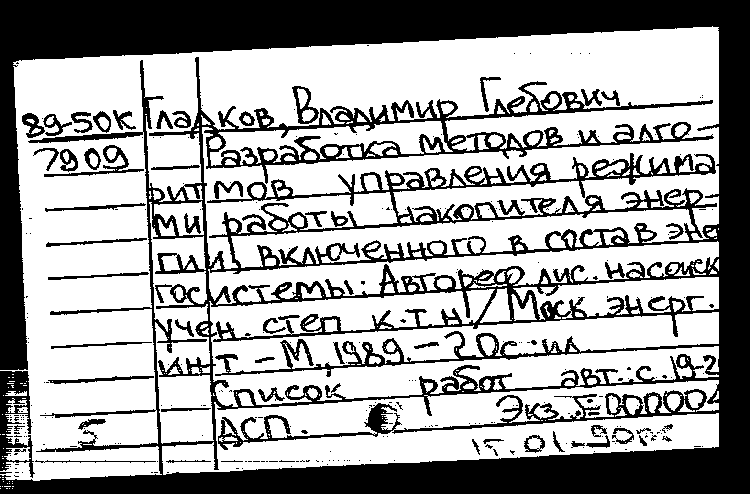 89-50К Гладков, Владимир Глебович.
7909 Разработка методов и алго-
ритмов управления режима-
ми работы накопителя энер-
гии, включенного в состав эне
госистемы: Автореф дис. на соиск
учен. степ к.т.н. / Моск. энерг.
ин-т. – М., 1989. – 20с.: ил.
Список работ авт.: с. 19-2
Экз. № 000004
5 ДСП.
15.01-90